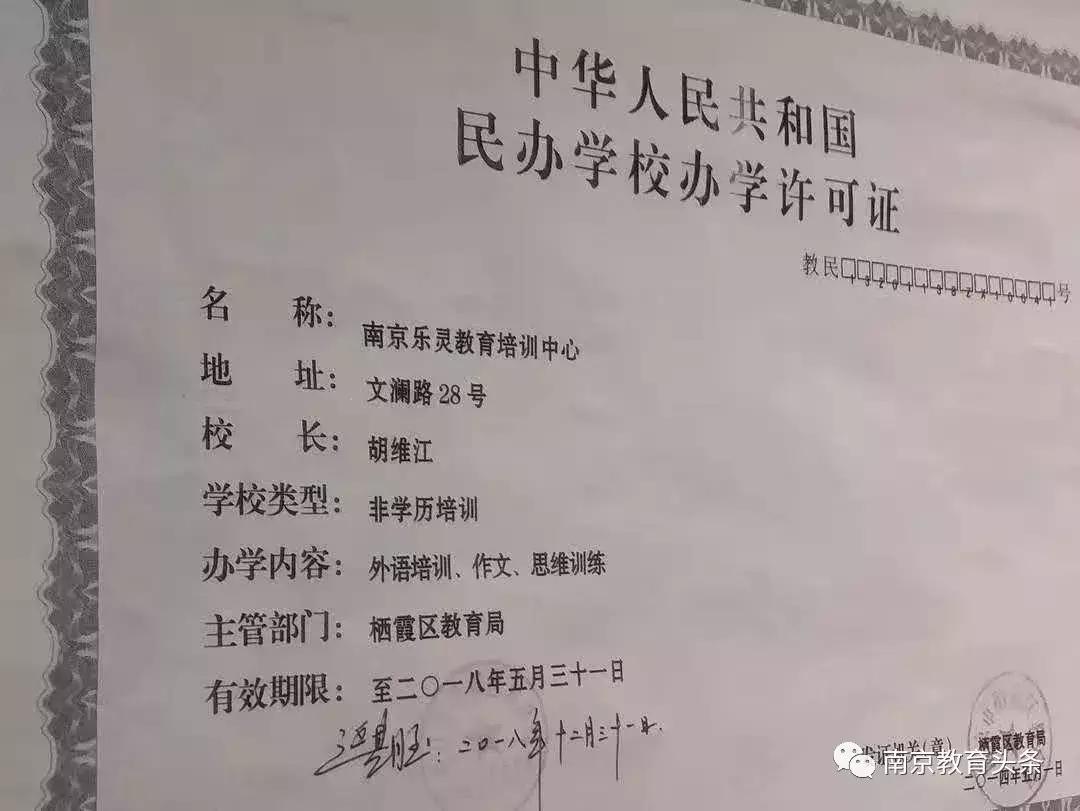 中华人民共和国
民办学校办学许可证
教民132011382A10041号
名 称： 南京乐灵教育培训中心
地 址： 文澜路28号
校 长： 胡维江
学校类型： 非学历培训
办学内容： 外语培训、作文、思维训练
主管部门： 栖霞区教育局
有效期限： 至二〇一八年五月三十一日
二〇一八年十二月三十一日.
发证机关(章)
栖霞区教育局
二〇一四年五月一日
南京教育头条